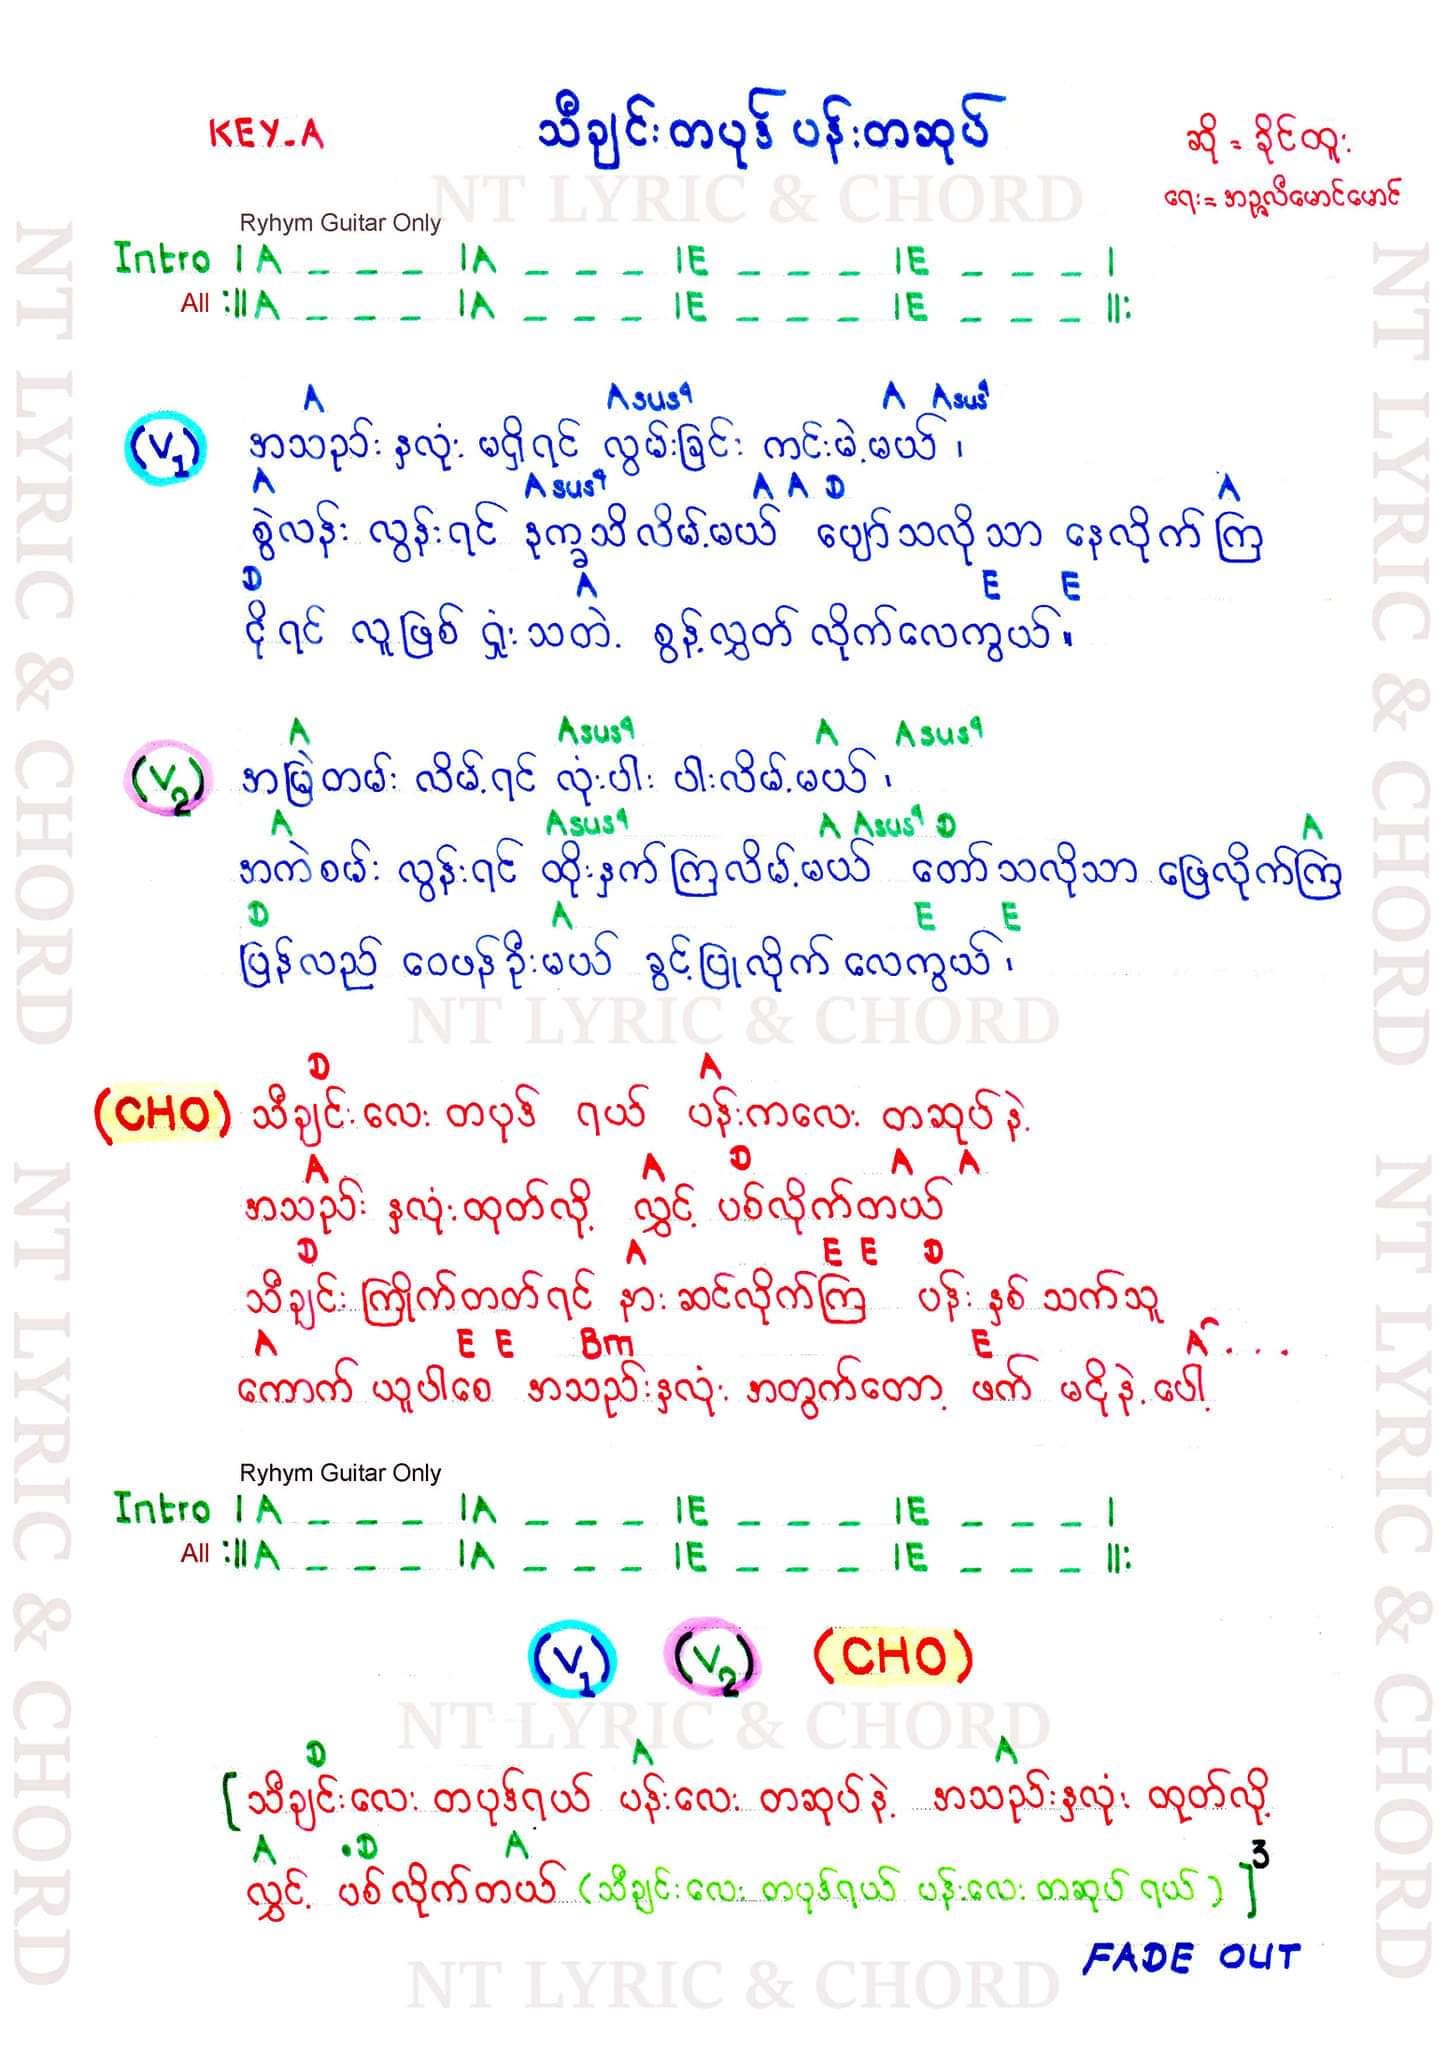 KEY-A
သီချင်းတပုဒ် ပန်းတဆုပ်
ဆို = ခိုင်ထူး
ရေး = အဉ္ဇလီမောင်မောင်
NT LYRIC & CHORD
Ryhym Guitar Only
Intro | A _ _ _ | A _ _ _ | E _ _ _ | E _ _ _ |
All :|| A _ _ _ | A _ _ _ | E _ _ _ | E _ _ _ ||:
A Asus4 A Asus4
(V1) အသည်း နှလုံး မရှိရင် လွမ်းခြင်း ကင်းမဲ့မယ်၊
A Asus4 A A D A
စွဲလန်း လွန်းရင် နက္ခသိလိမ့်မယ် ပျော်သလိုသာ နေလိုက်ကြ
D A E E
ငိုရင် လူဖြစ် ရှုံးသတဲ့ စွန့်လွှတ် လိုက်လေကွယ်။
A Asus4 A Asus4
(V2) အမြဲတမ်း လိမ့်ရင် လုံးပါး ပါးလိမ့်မယ်၊
A Asus4 A Asus4 D A
အကဲစမ်း လွန်းရင် ထိုးနှက်ကြလိမ့်မယ် တော်သလိုသာ ဖြေလိုက်ကြ
D A E E
ပြန်လည် ဝေဖန်ဦးမယ် ခွင့်ပြုလိုက် လေကွယ်၊
NT LYRIC & CHORD
D A
(CHO) သီချင်းလေး တပုဒ် ရယ် ပန်းကလေး တဆုပ်နဲ့
A A D A A
အသည်း နှလုံးထုတ်လို့ လွှင့် ပစ်လိုက်တယ်
D A E E D
သီချင်း ကြိုက်တတ်ရင် နားဆင်လိုက်ကြ ပန်း နှစ်သက်သူ
A E E Bm E A...
ကောက် ယူပါစေ အသည်းနှလုံး အတွက်တော့ ဖက် မငိုနဲ့ပေါ့
Ryhym Guitar Only
Intro | A _ _ _ | A _ _ _ | E _ _ _ | E _ _ _ |
All :|| A _ _ _ | A _ _ _ | E _ _ _ | E _ _ _ ||:
(V1) (V2) (CHO)
NT LYRIC & CHORD
D A A
[သီချင်းလေး တပုဒ်ရယ် ပန်းလေး တဆုပ်နဲ့ အသည်းနှလုံး ထုတ်လို့
A .D A
လွှင့် ပစ်လိုက်တယ် (သီချင်းလေး တပုဒ်ရယ် ပန်းလေး တဆုပ် ရယ်)]3
FADE OUT
NT LYRIC & CHORD
NT LYRIC & CHORD
NT LYRIC & CHORD
NT LYRIC & CHORD
NT LYRIC & CHORD